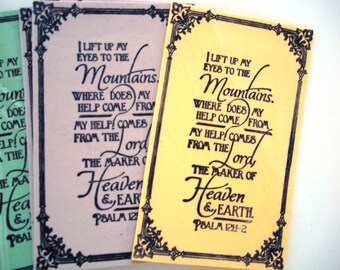 I LIFT UP MY
EYES TO THE
Mountains.
WHERE DOES MY
HELP COME FROM
MY HELP COMES
FROM THE Lord,
THE MAKER OF
Heaven
& EARTH.
PSALM 121:1-2
I LIFT UP MY
EYES TO THE
Mountains.
WHERE DOES MY
HELP COME FROM
MY HELP COMES
FROM THE Lord,
THE MAKER OF
Heaven
& EARTH.
PSALM 121:1-2